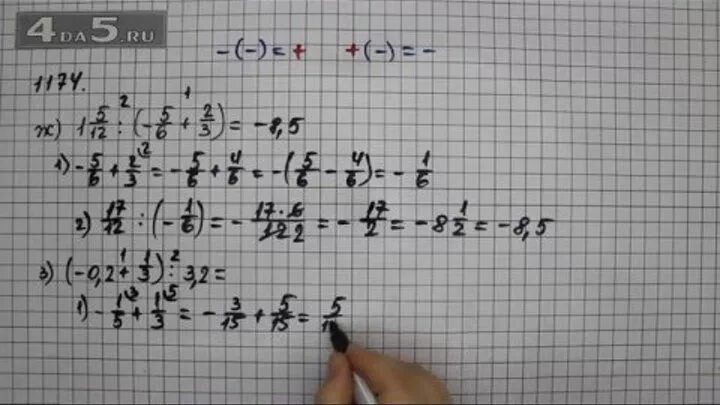 4 ДА 5.RU
-(-)=+ +(-)=-
1174.
ж) 1 5/12 : (-5/6 + 2/3) = -8,5
1) -5/6 + 2/3 = -5/6 + 4/6 = -(5/6 - 4/6) = -1/6
2) 17/12 : (-1/6) = -17·6/12 2 = -17/2 = -8 1/2 = -8,5
з) (-0,2 + 1/3) : 3,2 =
1) -1/5 + 1/3 = -3/15 + 5/15 = 5